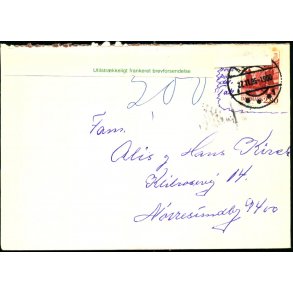 Utilstrækkeligt frankeret brevforsendelse
200
Fam.
Alis g Hans Kirch
14.
Nørresundby 9400